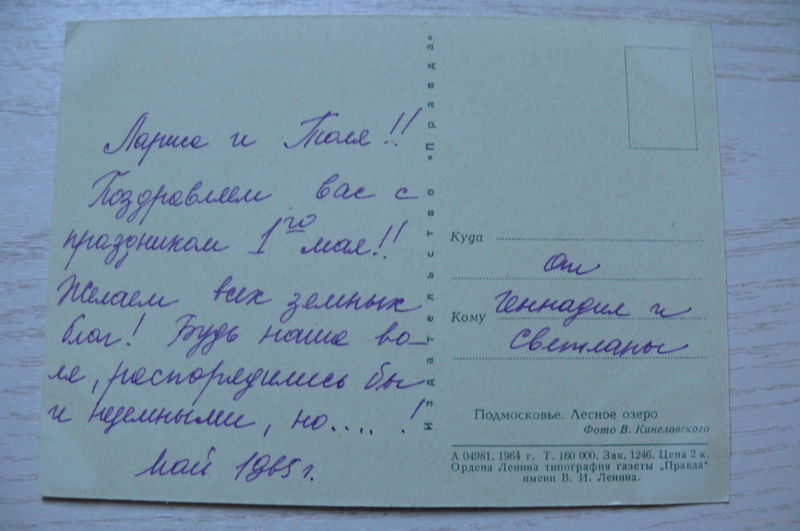 Лариса и Толя!!
Поздравляем вас с
праздником 1го мая!!
Желаем всех земных
благ! Будь наша во-
ля, распорядились бы
и неземными, но.....!
Май 1965 г.
Издательство «Правда»
Куда
От
Кому Геннадия и
Светланы
Подмосковье. Лесное озеро
Фото В. Кинеловского
А 04981. 1964 г. Т. 160 000. Зак. 1246. Цена 2 к.
Ордена Ленина типография газеты „Правда“
имени В. И. Ленина.